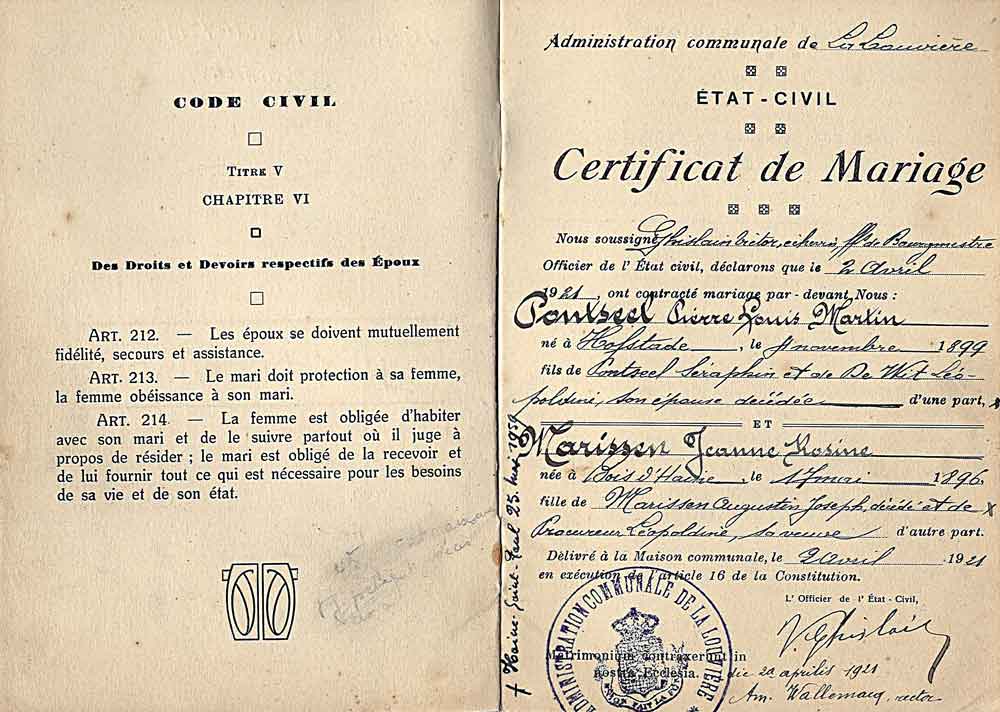 CODE CIVIL
TITRE V
CHAPITRE VI
Des Droits et Devoirs respectifs des Époux
ART. 212. — Les époux se doivent mutuellement
fidélité, secours et assistance.
ART. 213. — Le mari doit protection à sa femme,
la femme obéissance à son mari.
ART. 214. — La femme est obligée d'habiter
avec son mari et de le suivre partout où il juge à
propos de résider ; le mari est obligé de la recevoir et
de lui fournir tout ce qui est nécessaire pour les besoins
de sa vie et de son état.
Administration communale de La Louvière
ÉTAT-CIVIL
Certificat de Mariage
Nous soussigné Ghislain Victor, échevin, ff. de Bourgmestre
Officier de l'État civil, déclarons que le 2 Avril
1921, ont contracté mariage par-devant Nous :
Pontseel Pierre Louis Martin
né à Hofstade, le novembre 1899
fils de Pontseel Séraphin et de De Wit Léo-
poldine, son épouse décédée d'une part,
ET
Marissen Jeanne Rosine
née à Bois d'Haine, le mai 1896
fille de Marissen Augustin Joseph, décédé et de
Procureur Léopoldine, sa veuve d'autre part.
Délivré à la Maison communale, le 2 avril 1921
en exécution de l'article 16 de la Constitution.
L'Officier de l'État-Civil,
V. Ghislain
ADMINISTRATION COMMUNALE DE LA LOUVIÈRE
Matrimonium contraxerunt in
nostra Ecclesia. die 2a aprilis 1921
Am. Wallemacq, rector
† Haine-Saint-Paul 25